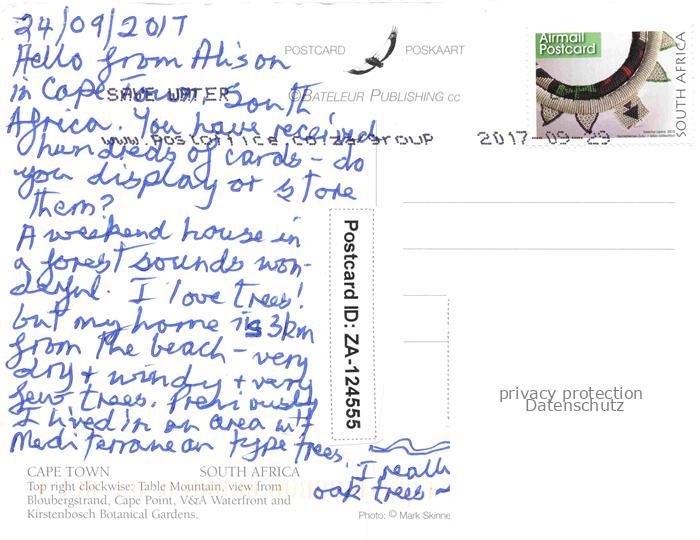 24/09/2017
Hello from Alison
in Cape Town, South
Africa. You have received
hundreds of cards - do
you display or store
them?
A weekend house in
a forest sounds won-
derful. I love trees!
but my home is 3km
from the beach - very
dry + windy + very
few trees. Previously
I lived in an area wit
Mediterranean type trees
I really
oak trees ~
POSTCARD POSKAART
©BATELEUR PUBLISHING cc
SAVE WATER
www.postoffice.co.za group 2017-09-29
Airmail
Postcard
SOUTH AFRICA
Postcard ID: ZA-124555
privacy protection
Datenschutz
CAPE TOWN SOUTH AFRICA
Top right clockwise: Table Mountain, view from
Bloubergstrand, Cape Point, V&A Waterfront and
Kirstenbosch Botanical Gardens.
Photo: © Mark Skinne